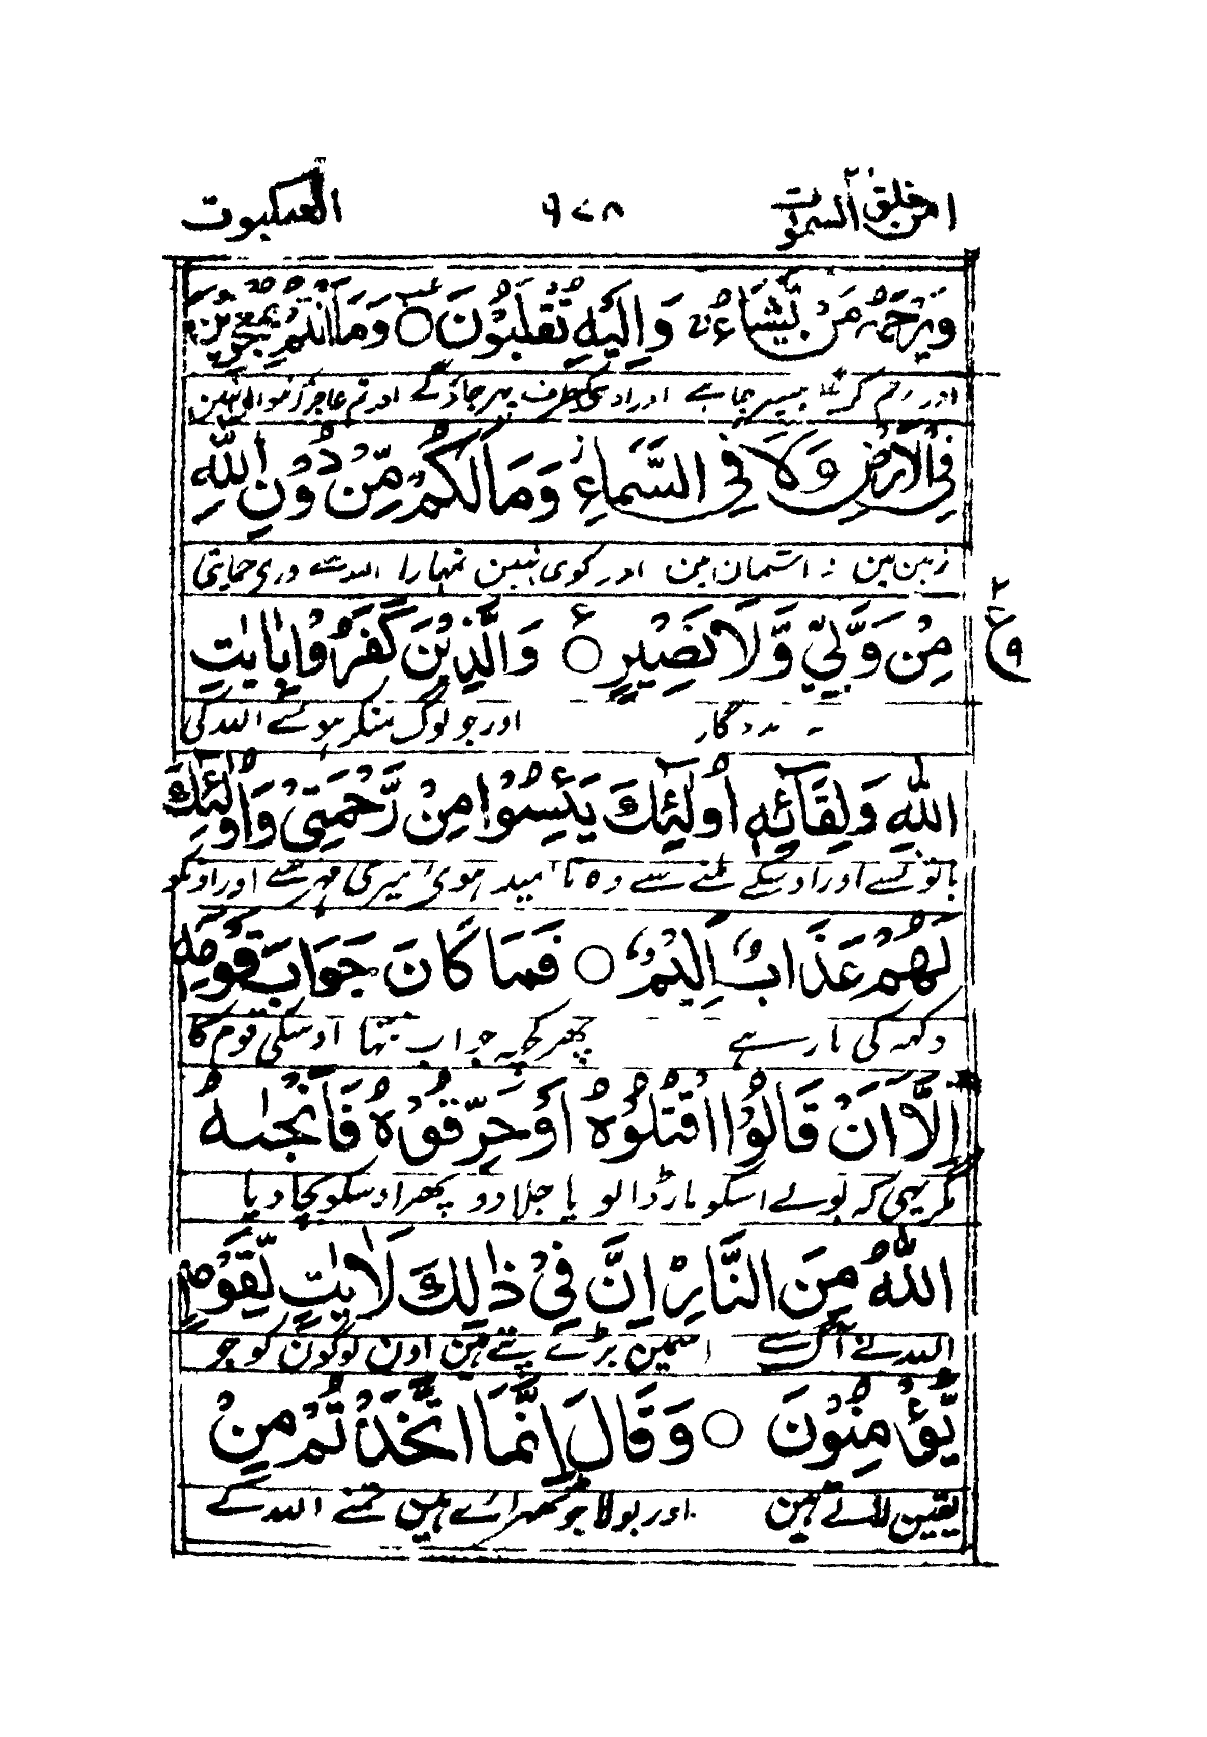 امن خلق السموات ٢٠ ٦٧٨ العنكبوت
وَيَرْحَمُ مَنْ يَّشَآءُ ۚ وَاِلَيْهِ تُقْلَبُوْنَ ○ وَمَآ اَنْتُمْ بِمُعْجِزِيْنَ
اور رحم کرے جسپر چاہے اور اوسی کی طرف پھر جاؤ گے اور تم عاجز کرنیوالے نہین
فِى الْاَرْضِ وَلَا فِى السَّمَآءِ ۚ وَمَا لَكُمْ مِّنْ دُوْنِ اللّٰهِ
زمین مین نہ آسمان مین اور کوی نہین تمہارا اللہ سے وری حمایتی
مِنْ وَّلِيٍّ وَّلَا نَصِيْرٍ ○ ع وَالَّذِيْنَ كَفَرُوْا بِاٰيٰتِ
نہ مددگار اور جو لوگ منکر ہوئے اللہ کی
٢ ع ٩
اللّٰهِ وَلِقَآئِهٖٓ اُولٰٓئِكَ يَئِسُوْا مِنْ رَّحْمَتِيْ وَاُولٰٓئِكَ
باتونسے اور اوسکے ملنے سے وہ نا امید ہوی میری مہر سے اور اونکو
لَهُمْ عَذَابٌ اَلِيْمٌ ○ فَمَا كَانَ جَوَابَ قَوْمِهٖٓ
دکھہ کی مار ہے پھر کچھہ جواب نتھا اوسکی قوم کا
اِلَّآ اَنْ قَالُوا اقْتُلُوْهُ اَوْ حَرِّقُوْهُ فَاَنْجٰىهُ
مگر یہی کہ بولے اسکو مار ڈالو یا جلا دو پھر اوسکو بچا دیا
اللّٰهُ مِنَ النَّارِ ۭ اِنَّ فِيْ ذٰلِكَ لَاٰيٰتٍ لِّقَوْمٍ
اللہ نے آگ سے اسمین بڑے پتے ہین اون لوگون کو جو
يُّؤْمِنُوْنَ ○ وَقَالَ اِنَّمَا اتَّخَذْتُمْ مِّنْ
یقین لاتے ہین اور بولا جو ٹھہرائے ہین تمنے اللہ کے